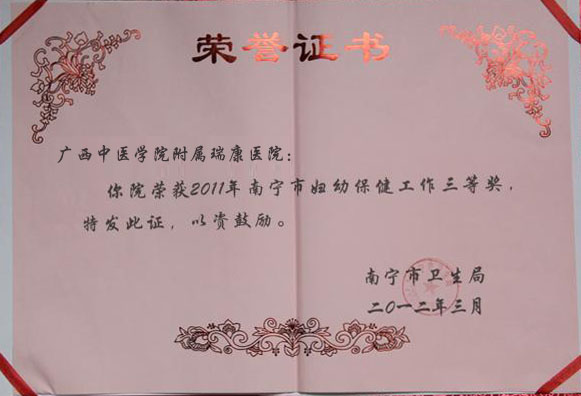 荣誉证书
广西中医学院附属瑞康医院：
你院荣获2011年南宁市妇幼保健工作三等奖，
特发此证，以资鼓励。
南宁市卫生局
二〇一二年三月